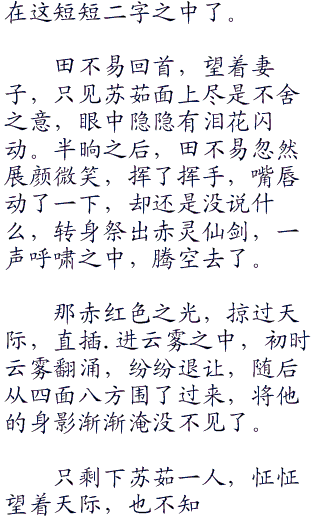 在这短短二字之中了。
田不易回首，望着妻
子，只见苏茹面上尽是不舍
之意，眼中隐隐有泪花闪
动。半晌之后，田不易忽然
展颜微笑，挥了挥手，嘴唇
动了一下，却还是没说什
么，转身祭出赤灵仙剑，一
声呼啸之中，腾空去了。
那赤红色之光，掠过天
际，直插.进云雾之中，初时
云雾翻涌，纷纷退让，随后
从四面八方围了过来，将他
的身影渐渐淹没不见了。
只剩下苏茹一人，怔怔
望着天际，也不知